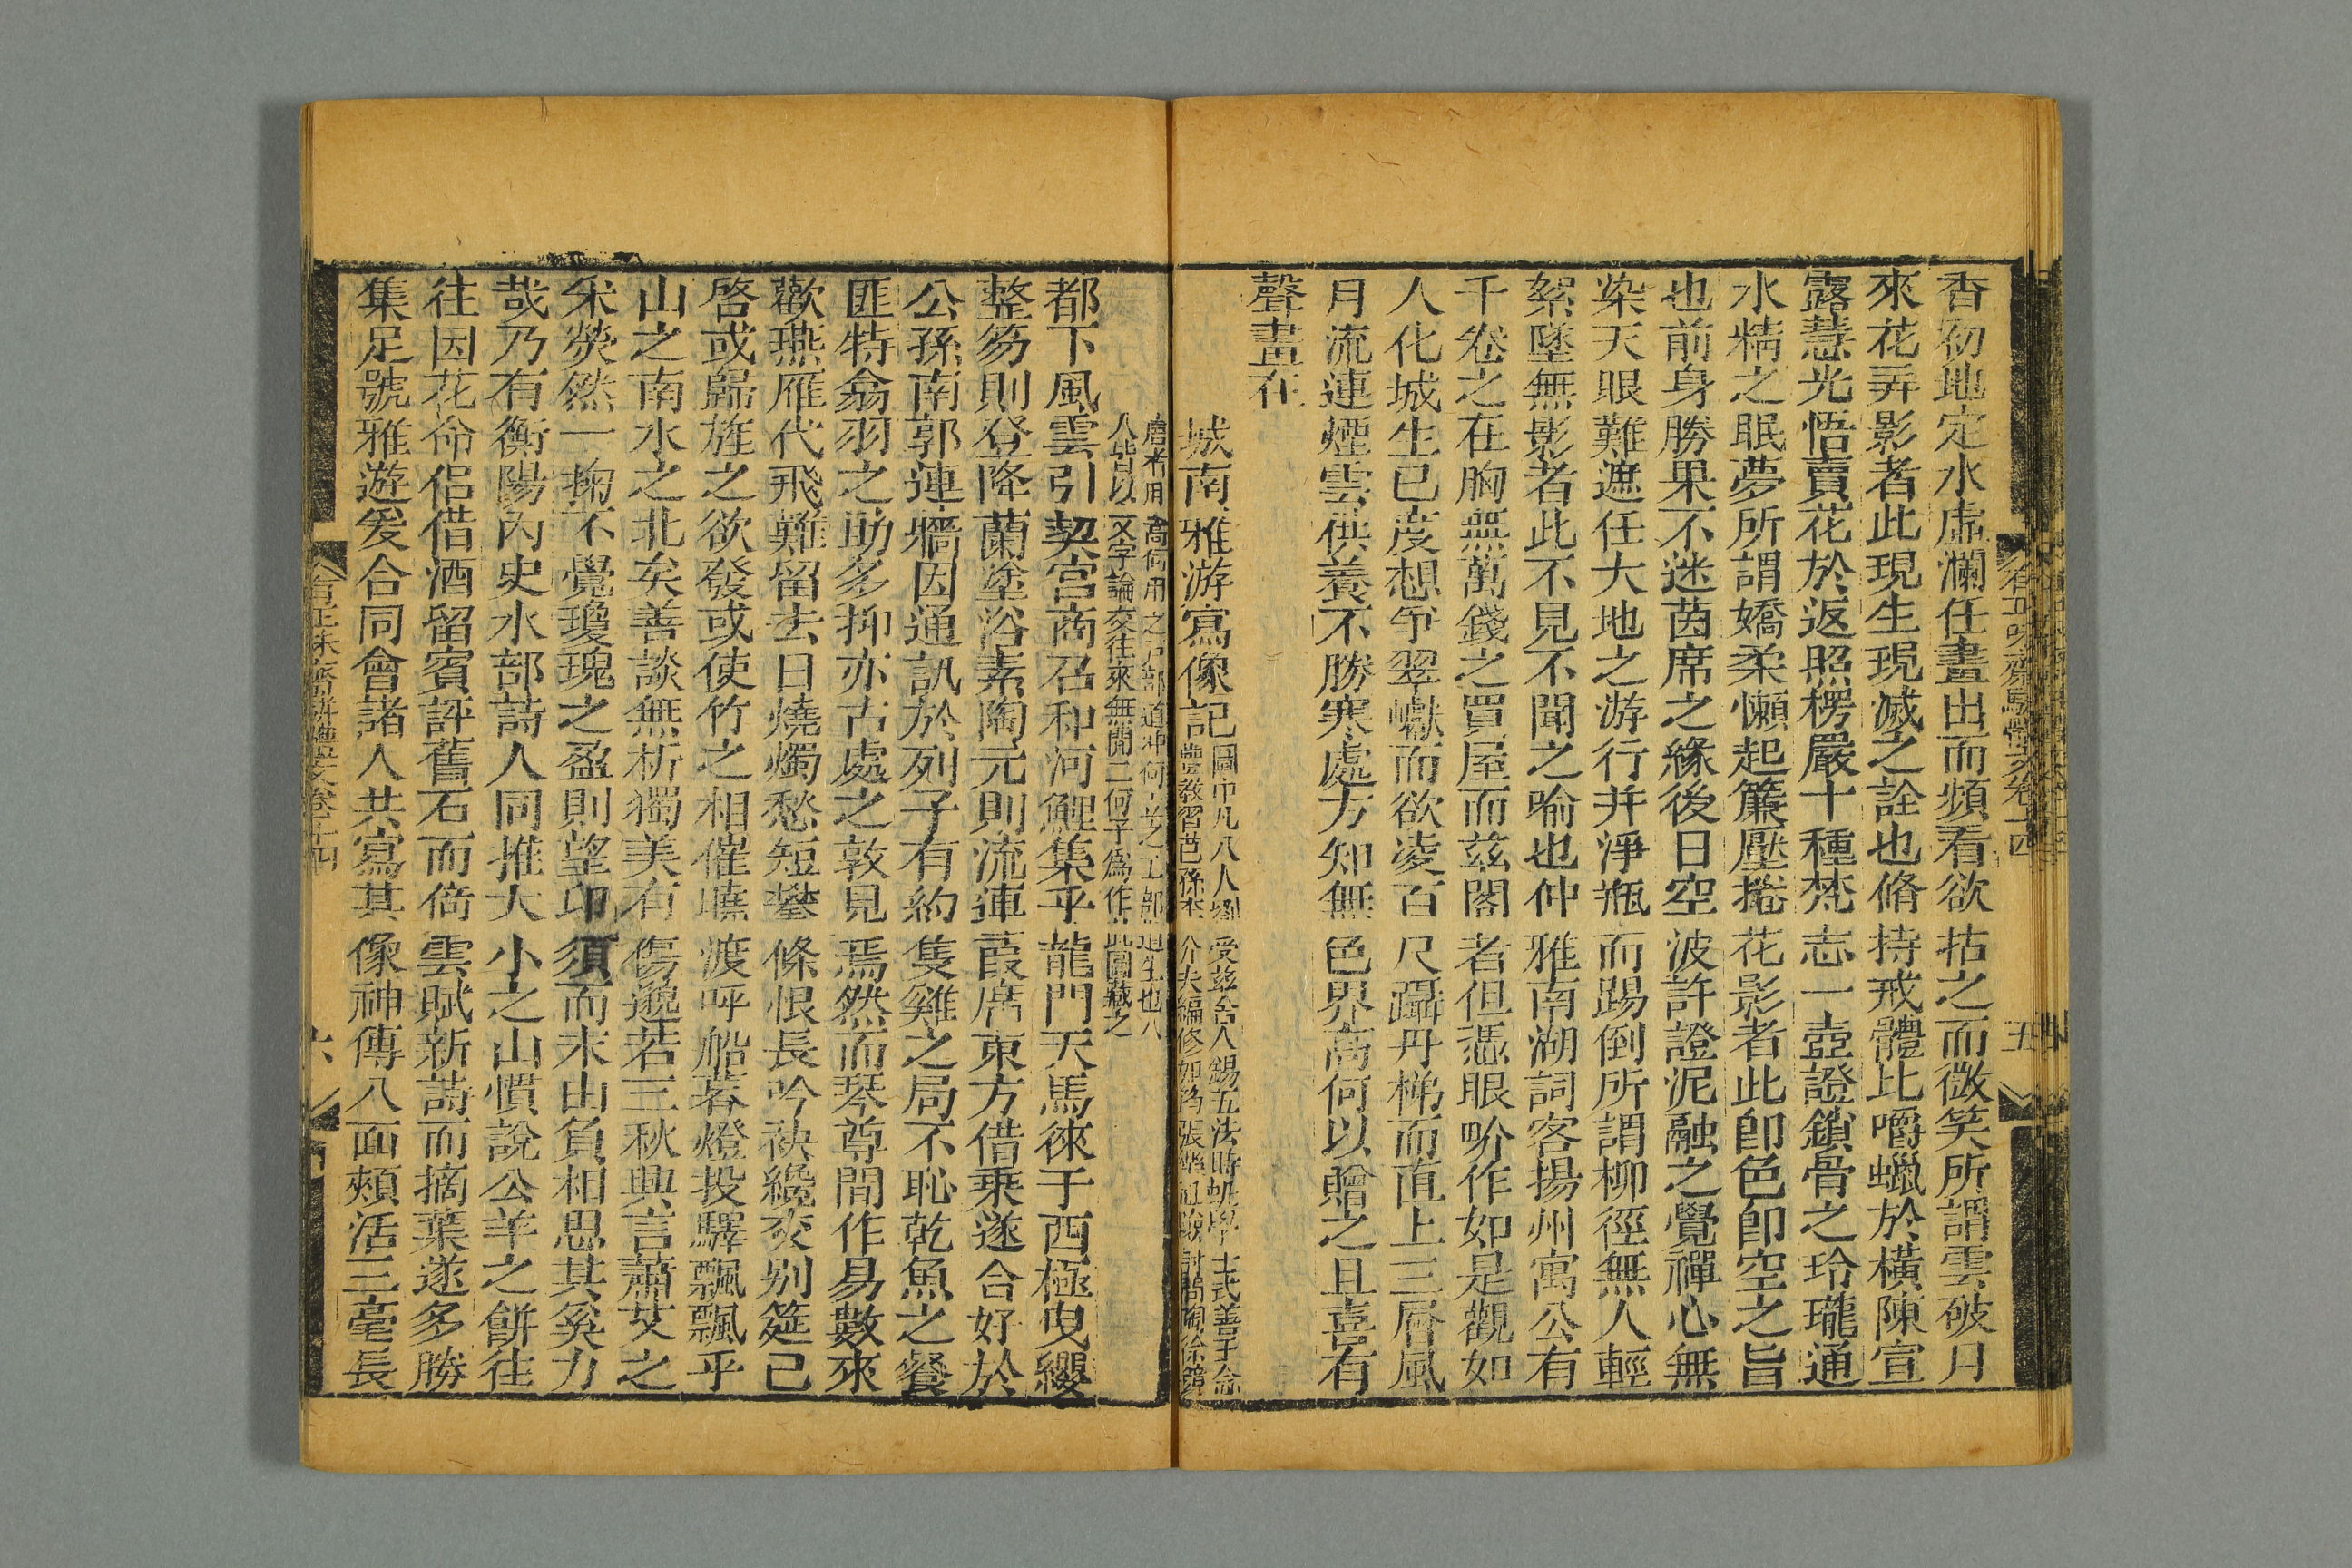 有正味齋駢體文卷十四
五
香初地定水虛瀾任畫出而頻看欲拈之而微笑所謂雲破月
來花弄影者此現生現滅之詮也脩持戒體比嚼蠟於橫陳宣
露慧光悟賣花於返照楞嚴十種梵志一壺證鎖骨之玲瓏通
水精之眠夢所謂嬌柔懶起簾壓捲花影者此卽色卽空之旨
也前身勝果不迷茵席之緣後日空波許證泥融之覺禪心無
染天眼難遮任大地之游行并淨瓶而踢倒所謂柳徑無人輕
絮墜無影者此不見不聞之喻也仲雅南湖詞客揚州寓公有
千卷之在胸無萬錢之買屋而茲閣者但憑眼吩作如是觀如
人化城生已度想爭翠巘而欲凌百尺躡丹梯而直上三層風
月流連煙雲供養不勝寒處方知無色界高何以贈之且喜有
聲畫在
城南雅游寫像記圖中凡八人劉受茲舍人錫五法時帆學士式善于
農教習邑孫李介夫編修如筠張檢討問陶徐鏡
唐者用之部道冲何之工部道生也八
人皆以文字論交往來無間二何子為作此圖藏之
都下風雲引契宮商召和河鯉集乎龍門天馬徠于西極曳纓
整笏則登降蘭塗浴素陶元則流連葭席東方借乘遂合好於
公孫南郭連牆因通訊於列子有約隻雞之局不恥乾魚之餐
匪特翕羽之助多抑亦古處之敦見焉然而琴尊間作易數來
歡燕雁代飛難留去日燒燭愁短攀條恨長吟袂纔交別筵已
啓或歸旌之欲發或使竹之相催嘵渡呼船暮燈投驛飄飄乎
山之南水之北矣善談無析獨美有傷邈若三秋興言蕭艾之
采熒然一掬不覺瓊瑰之盈則望卬須而未由負相思其奚力
哉乃有衡陽內史水部詩人同推大小之山慣說公羊之餅往
往因花命侶借酒留賓評舊石而倚雲賦新詩而摘葉遂多勝
集足號雅遊爰合同會諸人共寫其像神傳八面頰活三毫長
有正味齋駢體文卷十四
六